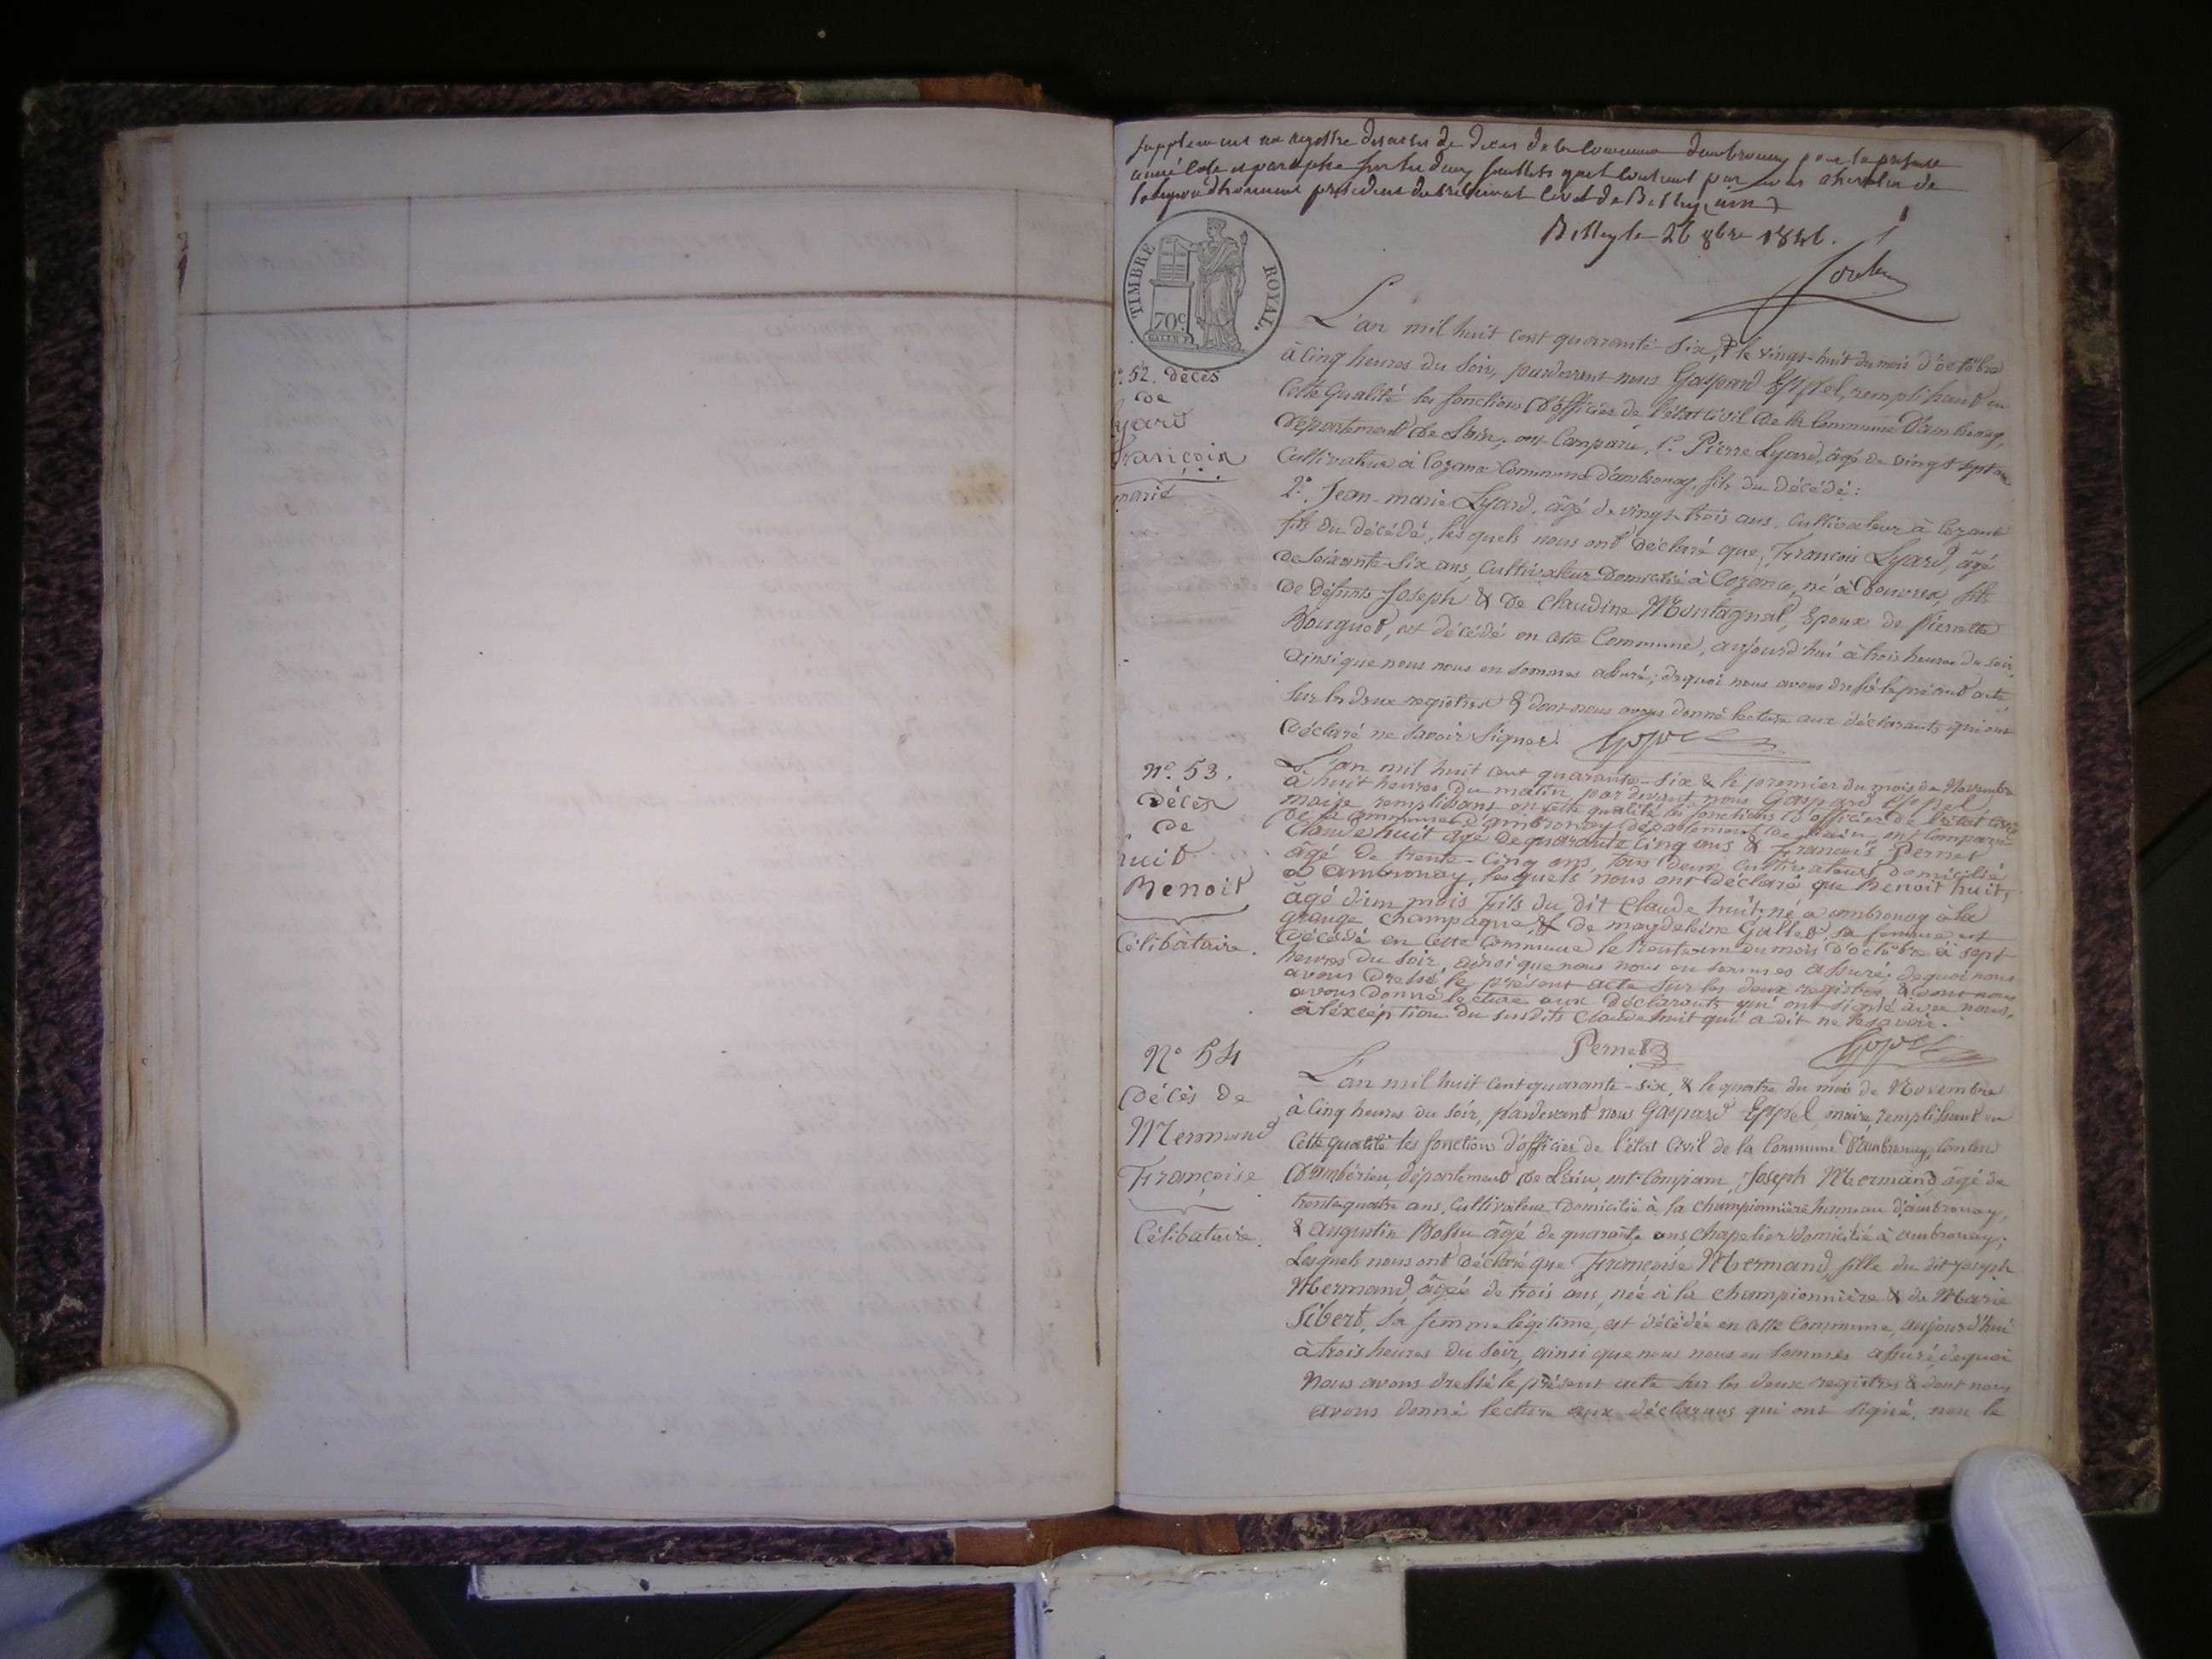 supplement au registre des actes de deces de la commune dambronay pour la presente
année coté et paraphé sur les deux feuillets quil contient par nous chevalier de
la legion dhonneur president du tribunal civil de Belley (ain)
Belley le 26 8bre 1846.
TIMBRE ROYAL.
70c
L'an mil huit cent quarante-six, & le vingt-huit du mois d'octobre
à cinq heures du soir, pardevant nous Gaspard Eppel, remplissant en
cette qualité les fonctions d'officier de l'état civil de la commune d'ambronay,
département de l'ain, ont comparu, 1° Pierre Lyard, âgé de vingt sept ans
cultivateur à Cozance commune d'ambronay, fils du décédé:
2°. Jean-marie Lyard, âgé de vingt-trois ans, cultivateur à Cozance
fils du décédé, lesquels nous ont déclaré que, François Lyard, âgé
de soixante-six ans, cultivateur domicilié à Cozance, né à Douvres, fils
de défunts Joseph & de Claudine Montagnat, Epoux de pierrette
Bouguet, est décédé en cette commune, aujourd'hui à trois heures du soir,
ainsi que nous nous en sommes assuré; dequoi nous avons dressé le présent acte
sur les deux registres & dont nous avons donné lecture aux déclarants qui ont
déclaré ne savoir signer.
°. 52. décès
de
Lyard
François
marié
n°. 53.
Décès
de
huit
Benoit
Célibataire.
L'an mil huit cent quarante-six & le premier du mois de Novembre
à huit heures du matin, par devant nous Gaspard Eppel,
maire remplissant en cette qualité les fonctions d'officier de l'état civil
de la commune d'ambronay département de l'ain, ont comparu
Claude huit âgé de quarante cinq ans & François Pernet
âgé de trente-cinq ans, tous deux cultivateurs domicilié
à ambronay, lesquels nous ont déclaré que Benoit huit,
âgé d'un mois fils du dit Claude huit, né à ambronay à la
grange Champagne, & de magdeleine Gallet, sa femme est
décédé en cette commune le trente-un du mois d'octobre à sept
heures du soir, ainsi que nous nous en sommes assuré; dequoi nous
avons dressé le présent acte sur les deux registres, & dont nous
avons donné lecture aux déclarants qui ont signé avec nous,
à l'exception du susdits Claude huit qui a dit ne le savoir.
Pernet
N° 54
Décès de
Mermand
Françoise
Célibataire.
L'an mil huit cent quarante-six, & le quatre du mois de Novembre
à cinq heures du soir, pardevant nous Gaspard Eppel, maire, remplissant en
cette qualité les fonctions d'officier de l'état civil de la commune d'ambronay, canton
d'ambérieu, département de l'ain, ont comparu, Joseph Mermand, âgé de
trente quatre ans, cultivateur domicilié à la championnière hameau d'ambronay,
& augustin Bossu âgé de quarante ans chapelier domicilié à ambronay;
Lesquels nous ont déclaré que Françoise Mermand, fille du dit Joseph
Mermand, âgée de trois ans, née à la championnière & de Marie
Sibert, sa femme légitime, est décédée en cette commune, aujourd'hui
à trois heures du soir, ainsi que nous nous en sommes assuré, dequoi
Nous avons dressé le présent acte sur les deux registres & dont nous
avons donné lecture aux déclarans qui ont signé, non le